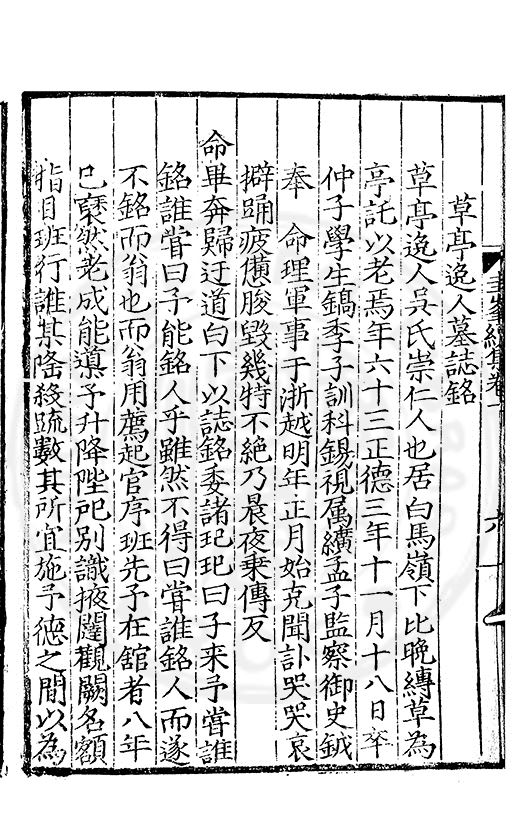 草亭逸人墓誌銘
草亭逸人吳氏崇仁人也居白馬嶺下比晚縳草為
亭託以老焉年六十三正德三年十一月十八日卒
仲子學生鎬季子訓科錫視属纊孟子監察御史鉞
奉　命理軍事于浙越明年正月始克聞訃哭哭哀
擗踊疲憊朘毀幾特不絶乃晨夜乗傳反
命畢奔歸迂道白下以誌銘委諸玘玘曰子来予嘗誰
銘誰嘗曰予能銘人乎雖然不得曰嘗誰銘人而遂
不銘而翁也而翁用薦起官序班先予在舘者八年
已褎然老成能導予升降陛戺别識掖闥觀闕名額
指目班行誰某隆殺疏數其所宜施予德之間以為
圭峯續集卷一
六